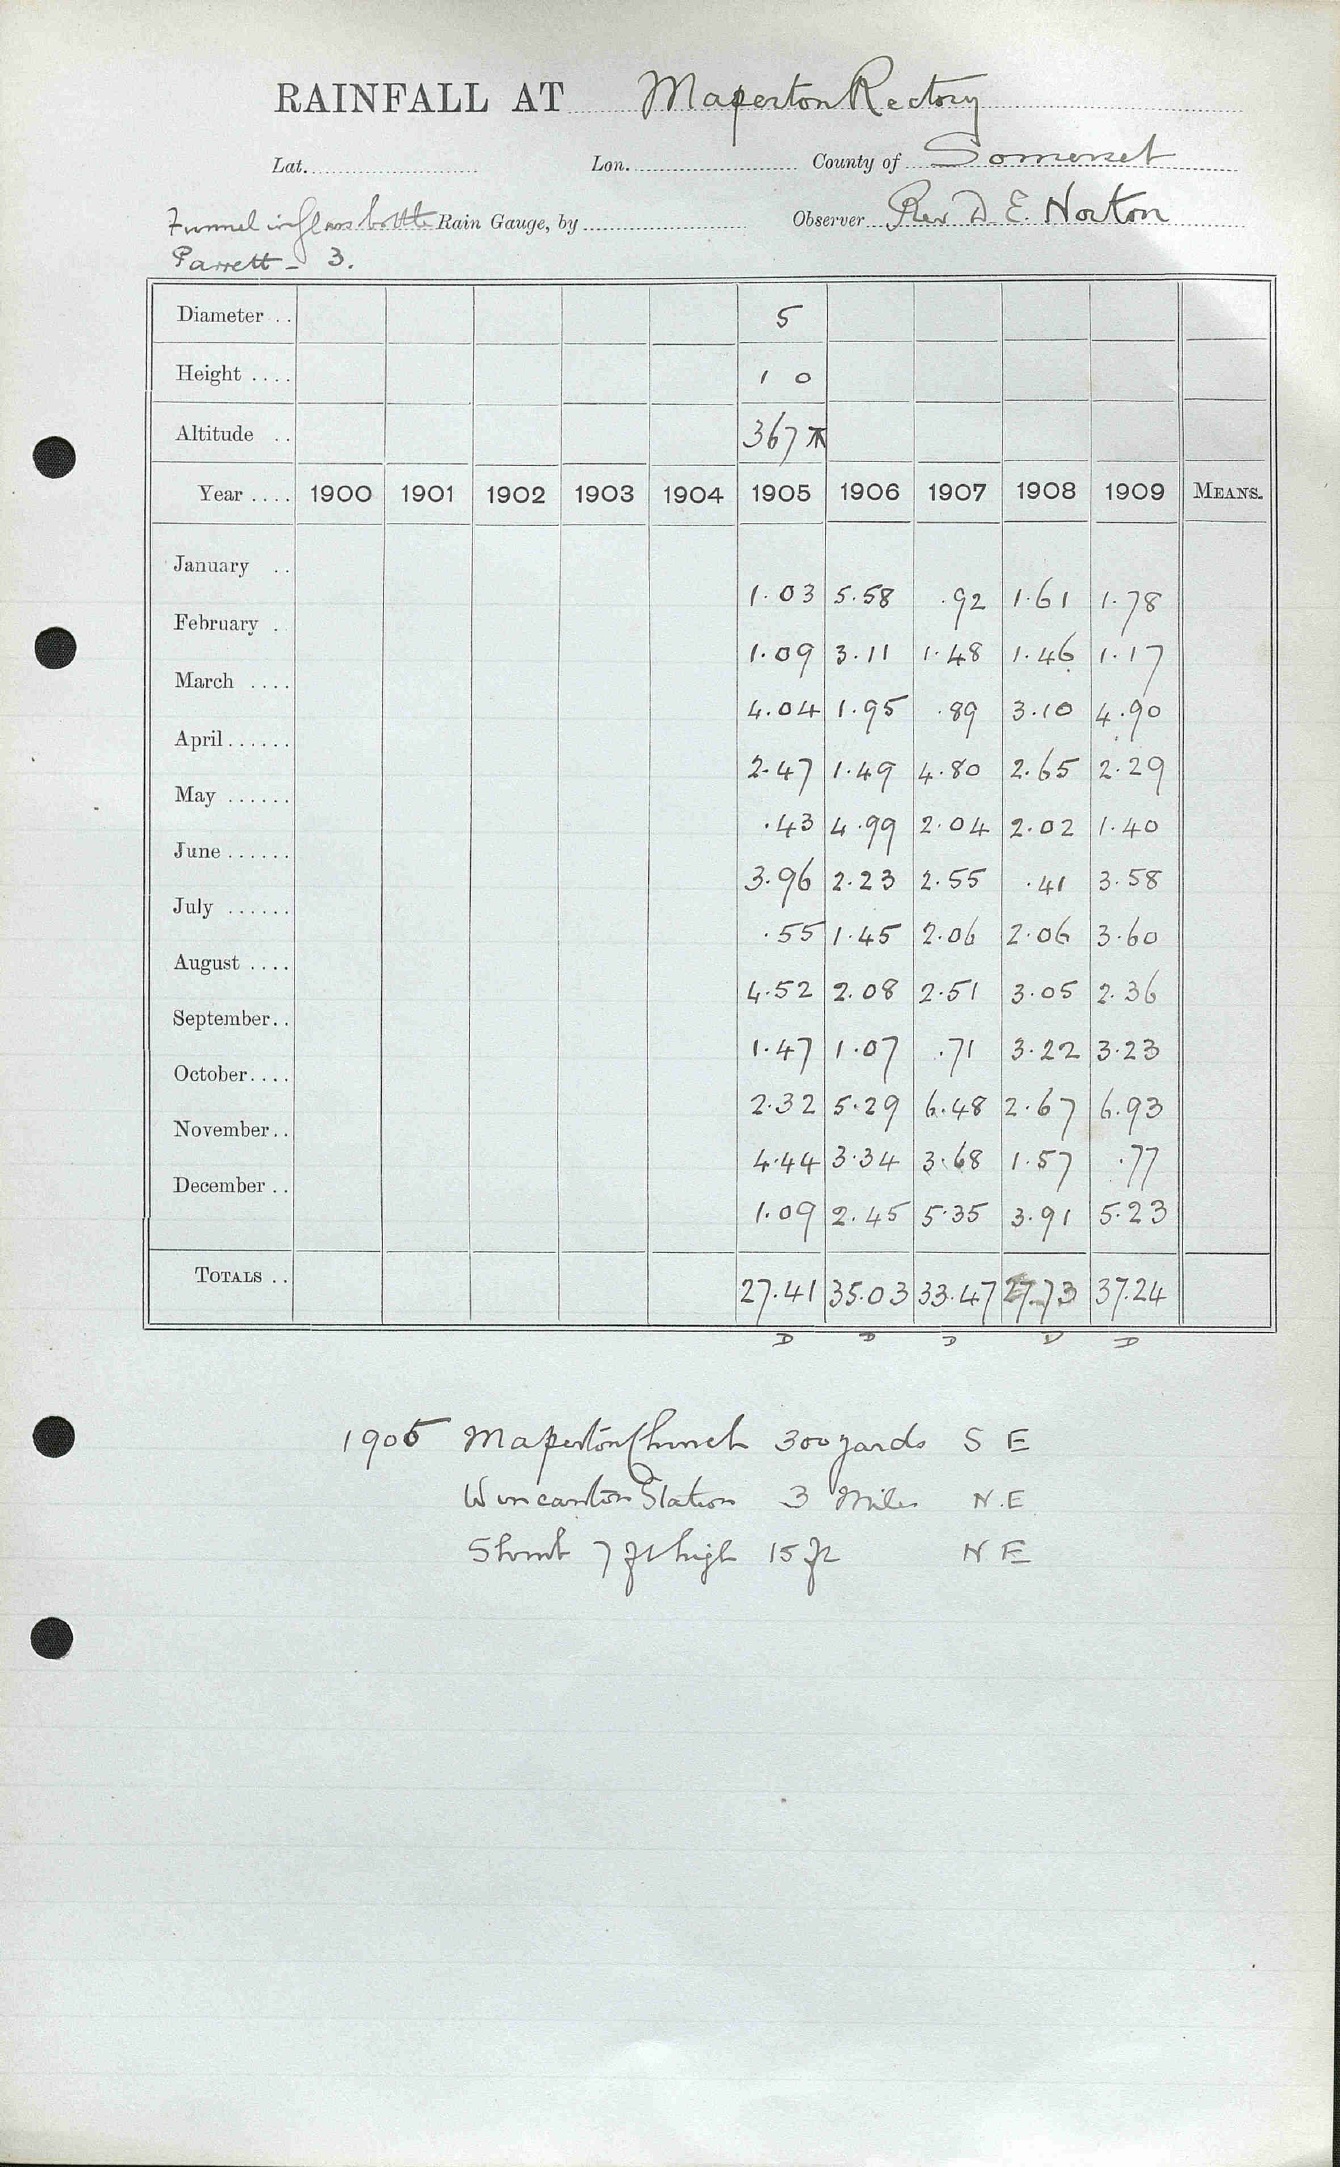 RAINFALL AT Maperton Rectory
Lat. Lon. County of Somerset
Funnel in Glass bottle Rain Gauge, by Observer Rev D. E. Norton
Parrett - 3.
Diameter .. 5
Height .... 1 0
Altitude .. 367 ft
Year .... 1900 1901 1902 1903 1904 1905 1906 1907 1908 1909 MEANS.
January .. 1.03 5.58 .92 1.61 1.78
February . 1.09 3.11 1.48 1.46 1.17
March .... 4.04 1.95 .89 3.10 4.90
April ...... 2.47 1.49 4.80 2.65 2.29
May ...... .43 4.99 2.04 2.02 1.40
June ...... 3.96 2.23 2.55 .41 3.58
July ...... .55 1.45 2.06 2.06 3.60
August .... 4.52 2.08 2.51 3.05 2.36
September.. 1.47 1.07 .71 3.22 3.23
October.... 2.32 5.29 6.48 2.67 6.93
November.. 4.44 3.34 3.68 1.57 .77
December .. 1.09 2.45 5.35 3.91 5.23
TOTALS .. 27.41 35.03 33.47 27.73 37.24
D D D D D
1905 Maperton Church 300 yards S E
Wincanton Station 3 Miles N.E
Shrub 7 ft high 15 ft N E